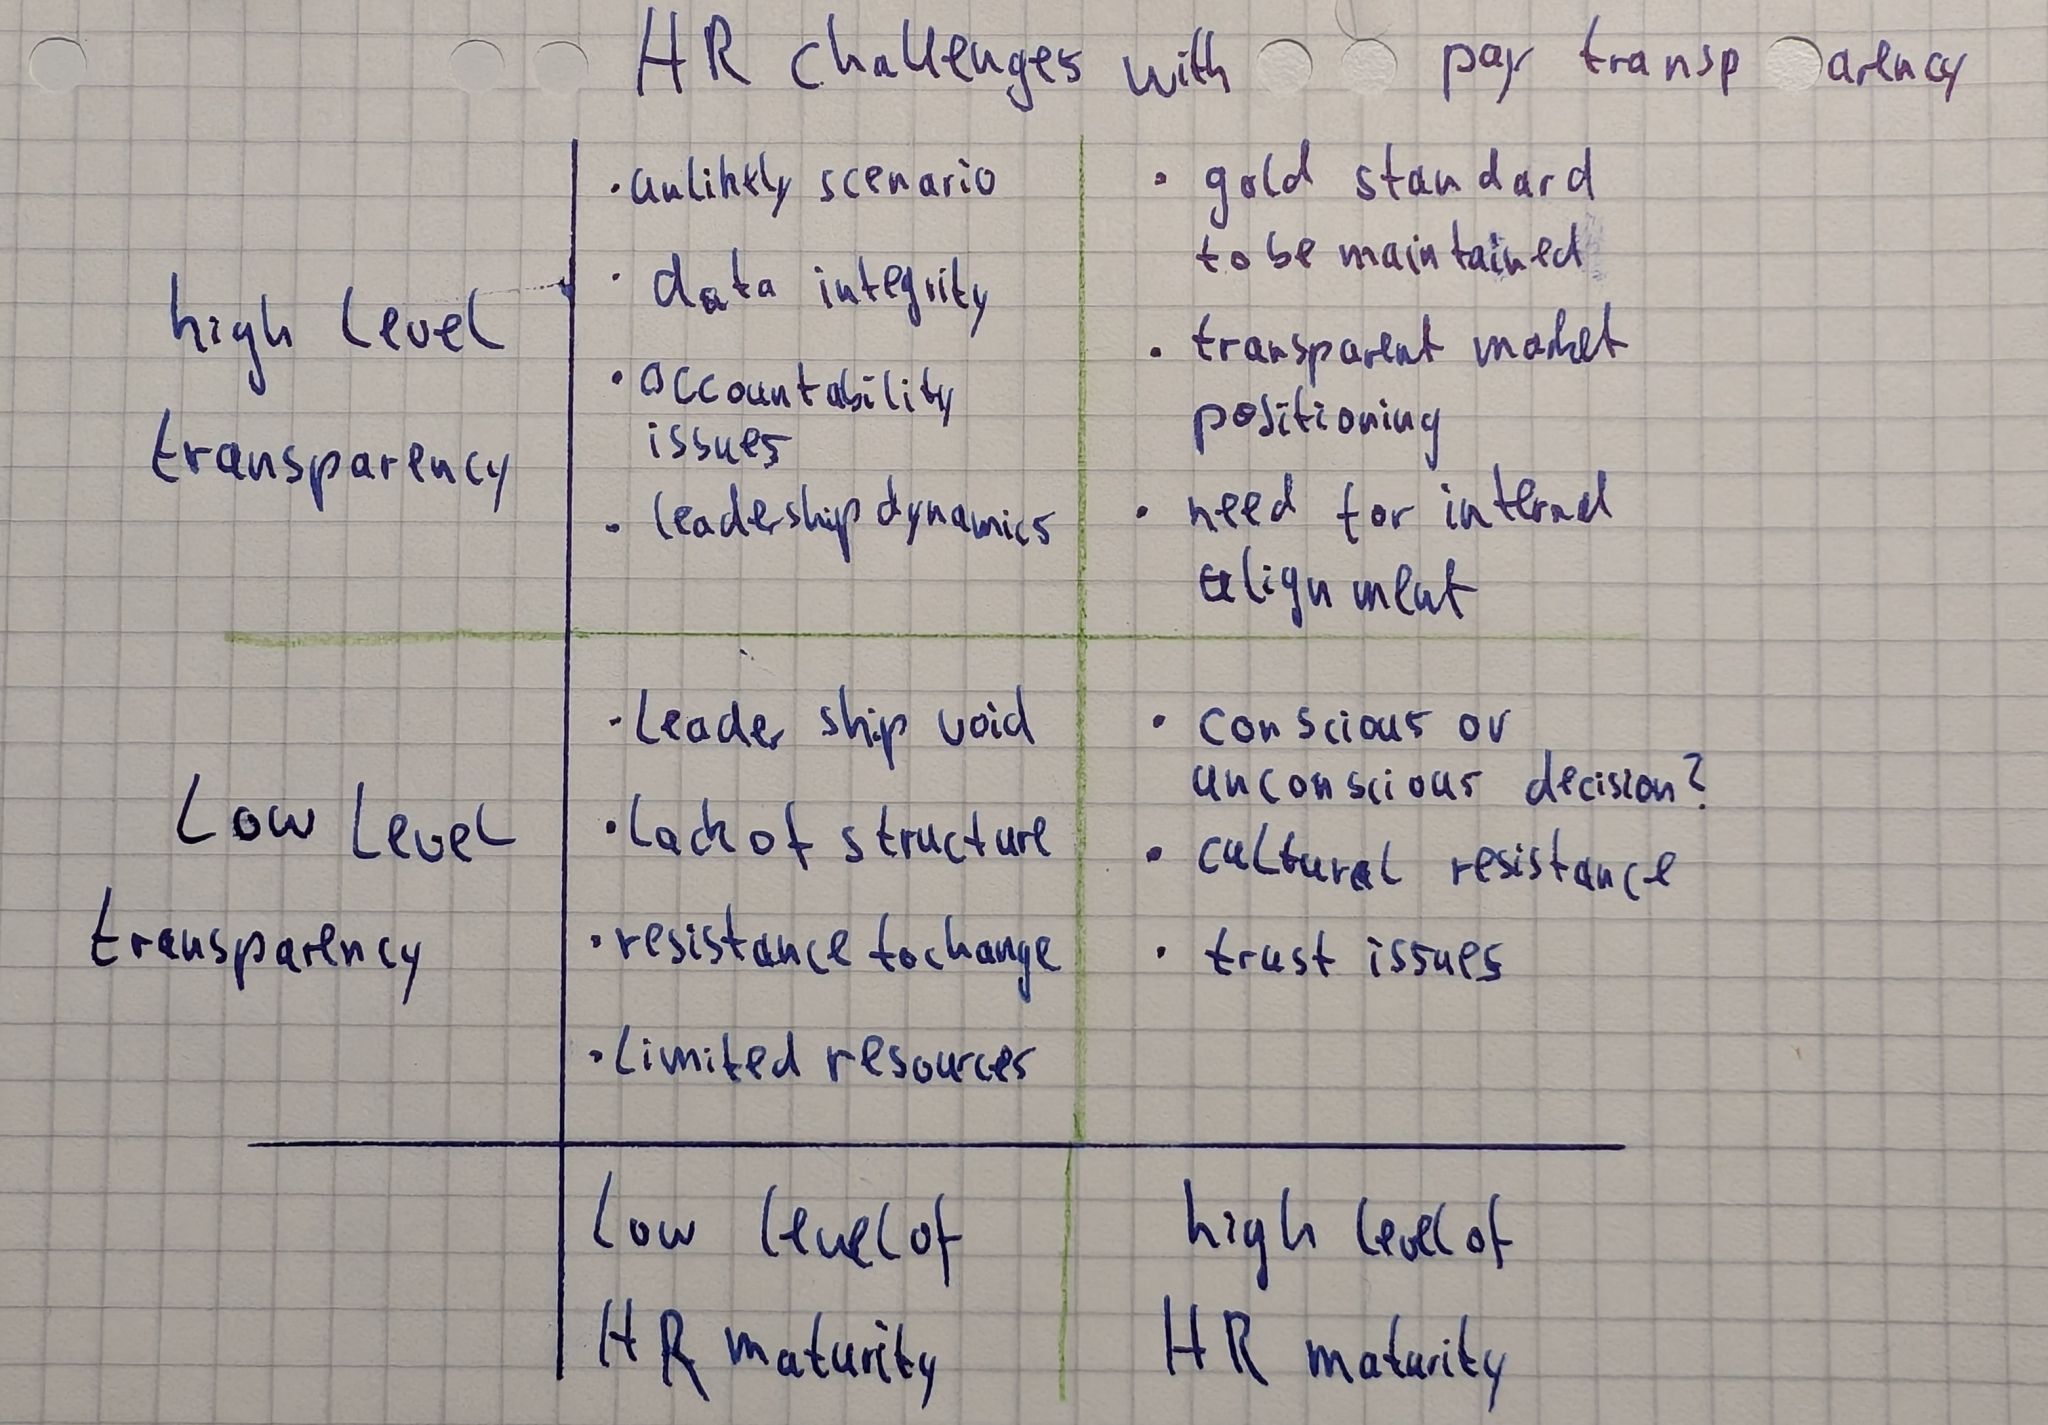 HR challenges with pay transparency
high level
transparency
• unlikely scenario
• data integrity
• accountability
issues
• leadership dynamics
• gold standard
to be maintained
• transparent market
positioning
• need for internal
alignment
Low Level
transparency
• Leadership void
• Lack of structure
• resistance to change
• Limited resources
• conscious or
unconscious decision?
• cultural resistance
• trust issues
Low level of
HR maturity
high level of
HR maturity